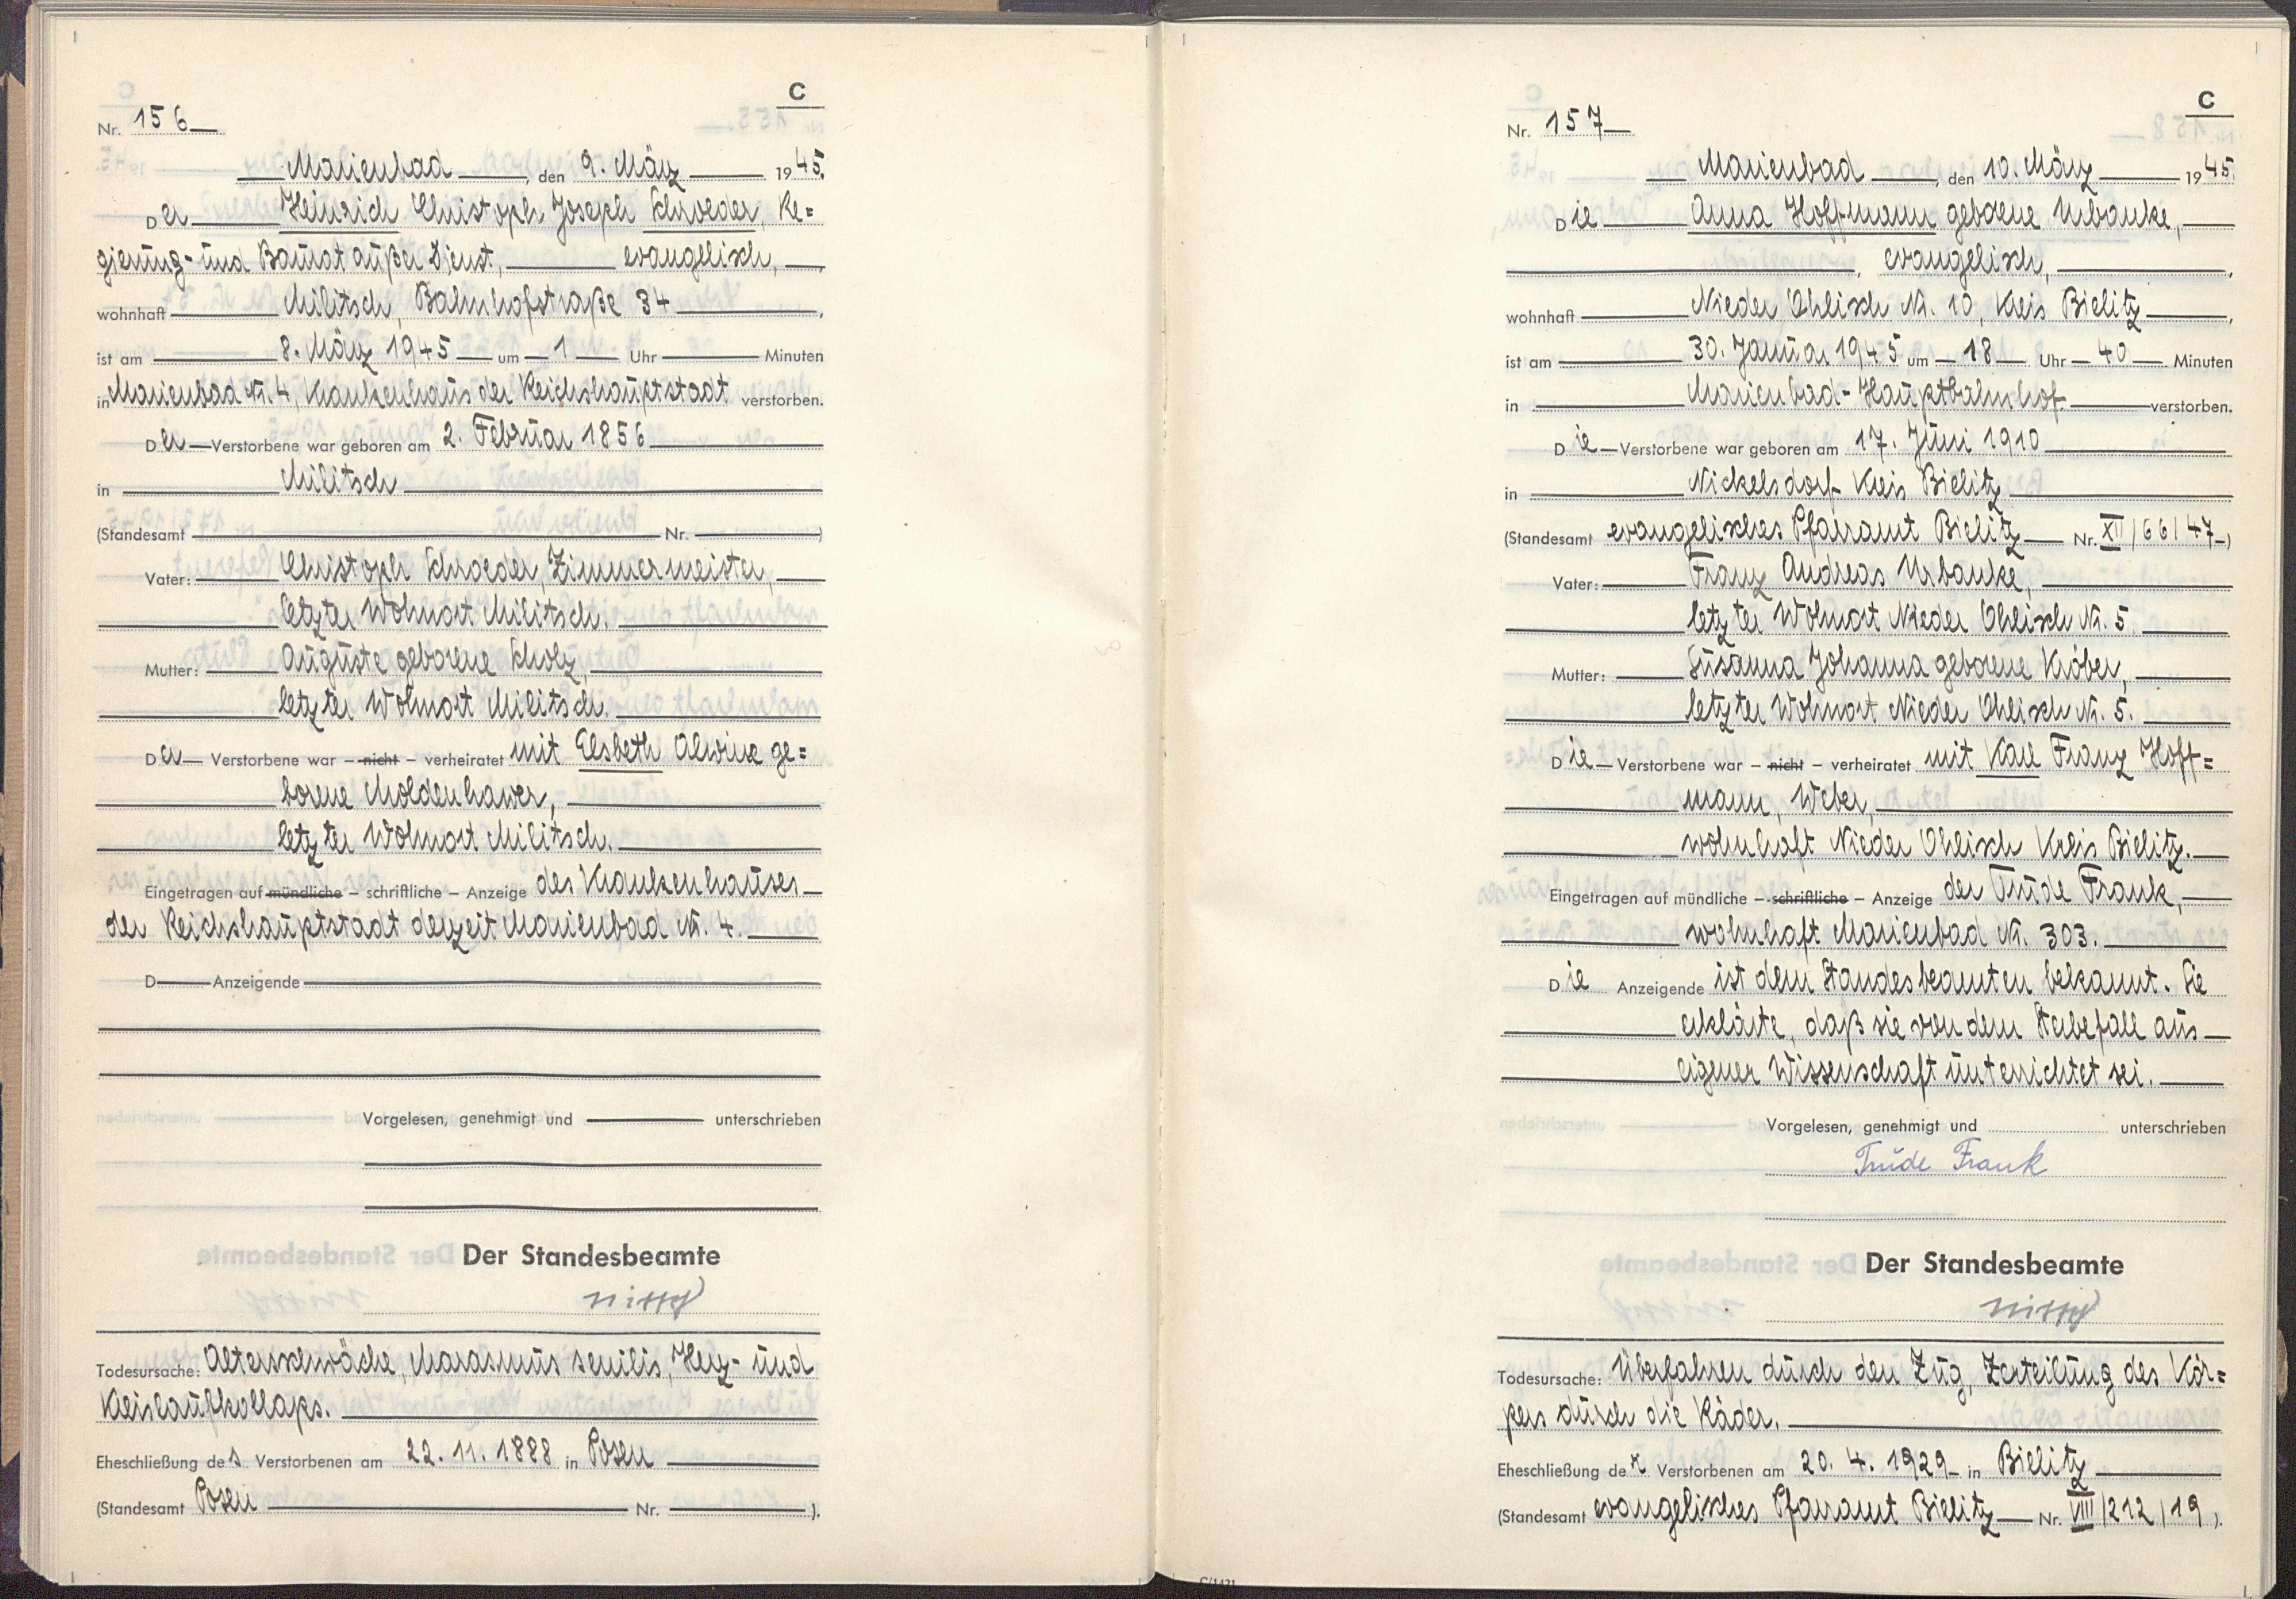 C
Nr. 156
Marienbad, den 9. März 1945.
Der Heinrich Christoph Joseph Schroeder, Re=
gierung- und Baurat außer Dienst, evangelisch,
wohnhaft Militsch, Bahnhofstraße 34,
ist am 8. März 1945 um 1 Uhr Minuten
in Marienbad Nr. 4, Krankenhaus der Reichshauptstadt verstorben.
Der Verstorbene war geboren am 2. Februar 1856
in Militsch
(Standesamt Nr. )
Vater: Christoph Schroeder, Zimmermeister,
letzter Wohnort Militsch.
Mutter: Auguste geborene Scholz,
letzter Wohnort Militsch.
Der Verstorbene war – nicht – verheiratet mit Elsbeth Alwine ge=
borene Moldenhawer,
letzter Wohnort Militsch.
Eingetragen auf mündliche – schriftliche – Anzeige des Krankenhauses
der Reichshauptstadt derzeit Marienbad Nr. 4.
D Anzeigende
Vorgelesen, genehmigt und unterschrieben
Der Standesbeamte
Todesursache: Altersschwäche, Marasmus senilis, Herz- und
Kreislaufkollaps.
Eheschließung des Verstorbenen am 22. 11. 1888 in Posen
(Standesamt Posen Nr. ).
C
Nr. 157
Marienbad, den 10. März 1945.
Die Anna Hoffmann geborene Urbanke,
, evangelisch,
wohnhaft Nieder Ohlisch Nr. 10, Kreis Bielitz,
ist am 30. Januar 1945 um 18 Uhr 40 Minuten
in Marienbad-Hauptbahnhof verstorben.
Die Verstorbene war geboren am 17. Juni 1910
in Nickelsdorf Kreis Bielitz
(Standesamt evangelisches Pfarramt Bielitz Nr. XII/66/47)
Vater: Franz Andreas Urbanke,
letzter Wohnort Nieder Ohlisch Nr. 5
Mutter: Susanna Johanna geborene Kröber,
letzter Wohnort Nieder Ohlisch Nr. 5.
Die Verstorbene war – nicht – verheiratet mit Karl Franz Hoff=
mann, Weber,
wohnhaft Nieder Ohlisch Kreis Bielitz.
Eingetragen auf mündliche – schriftliche – Anzeige der Trude Frank,
wohnhaft Marienbad Nr. 303.
Die Anzeigende ist dem Standesbeamten bekannt. Sie
erklärte, daß sie von dem Sterbefall aus
eigener Wissenschaft unterrichtet sei.
Vorgelesen, genehmigt und unterschrieben
Trude Frank
Der Standesbeamte
Todesursache: Überfahren durch den Zug, Zerteilung des Kör=
pers durch die Räder.
Eheschließung der Verstorbenen am 20. 4. 1929 in Bielitz
(Standesamt evangelisches Pfarramt Bielitz Nr. VIII/212/19).